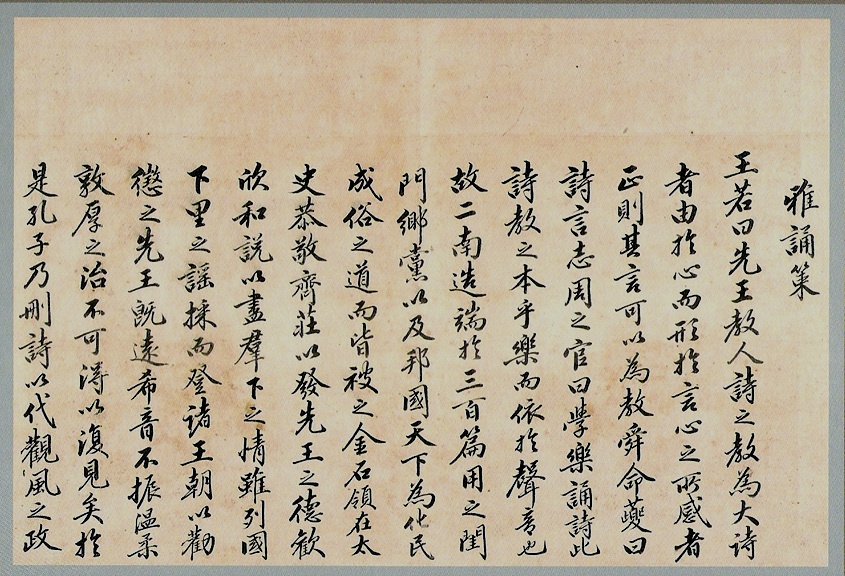 雅誦策
王若曰先王教人詩之教為大詩
者由於心而形於言心之所感者
正則其言可以為教舜命夔曰
詩言志周之官曰學樂誦詩此
詩教之本乎樂而依於聲音也
故二南造端於三百篇用之閨
門鄉黨以及邦國天下為化民
成俗之道而皆被之金石領在太
史恭敬齊莊以發先王之德歡
欣和說以盡羣下之情雖列國
下里之謡採而登諸王朝以勸
懲之先王旣遠希音不振溫柔
敦厚之治不可得以復見矣於
是孔子乃刪詩以代觀風之政